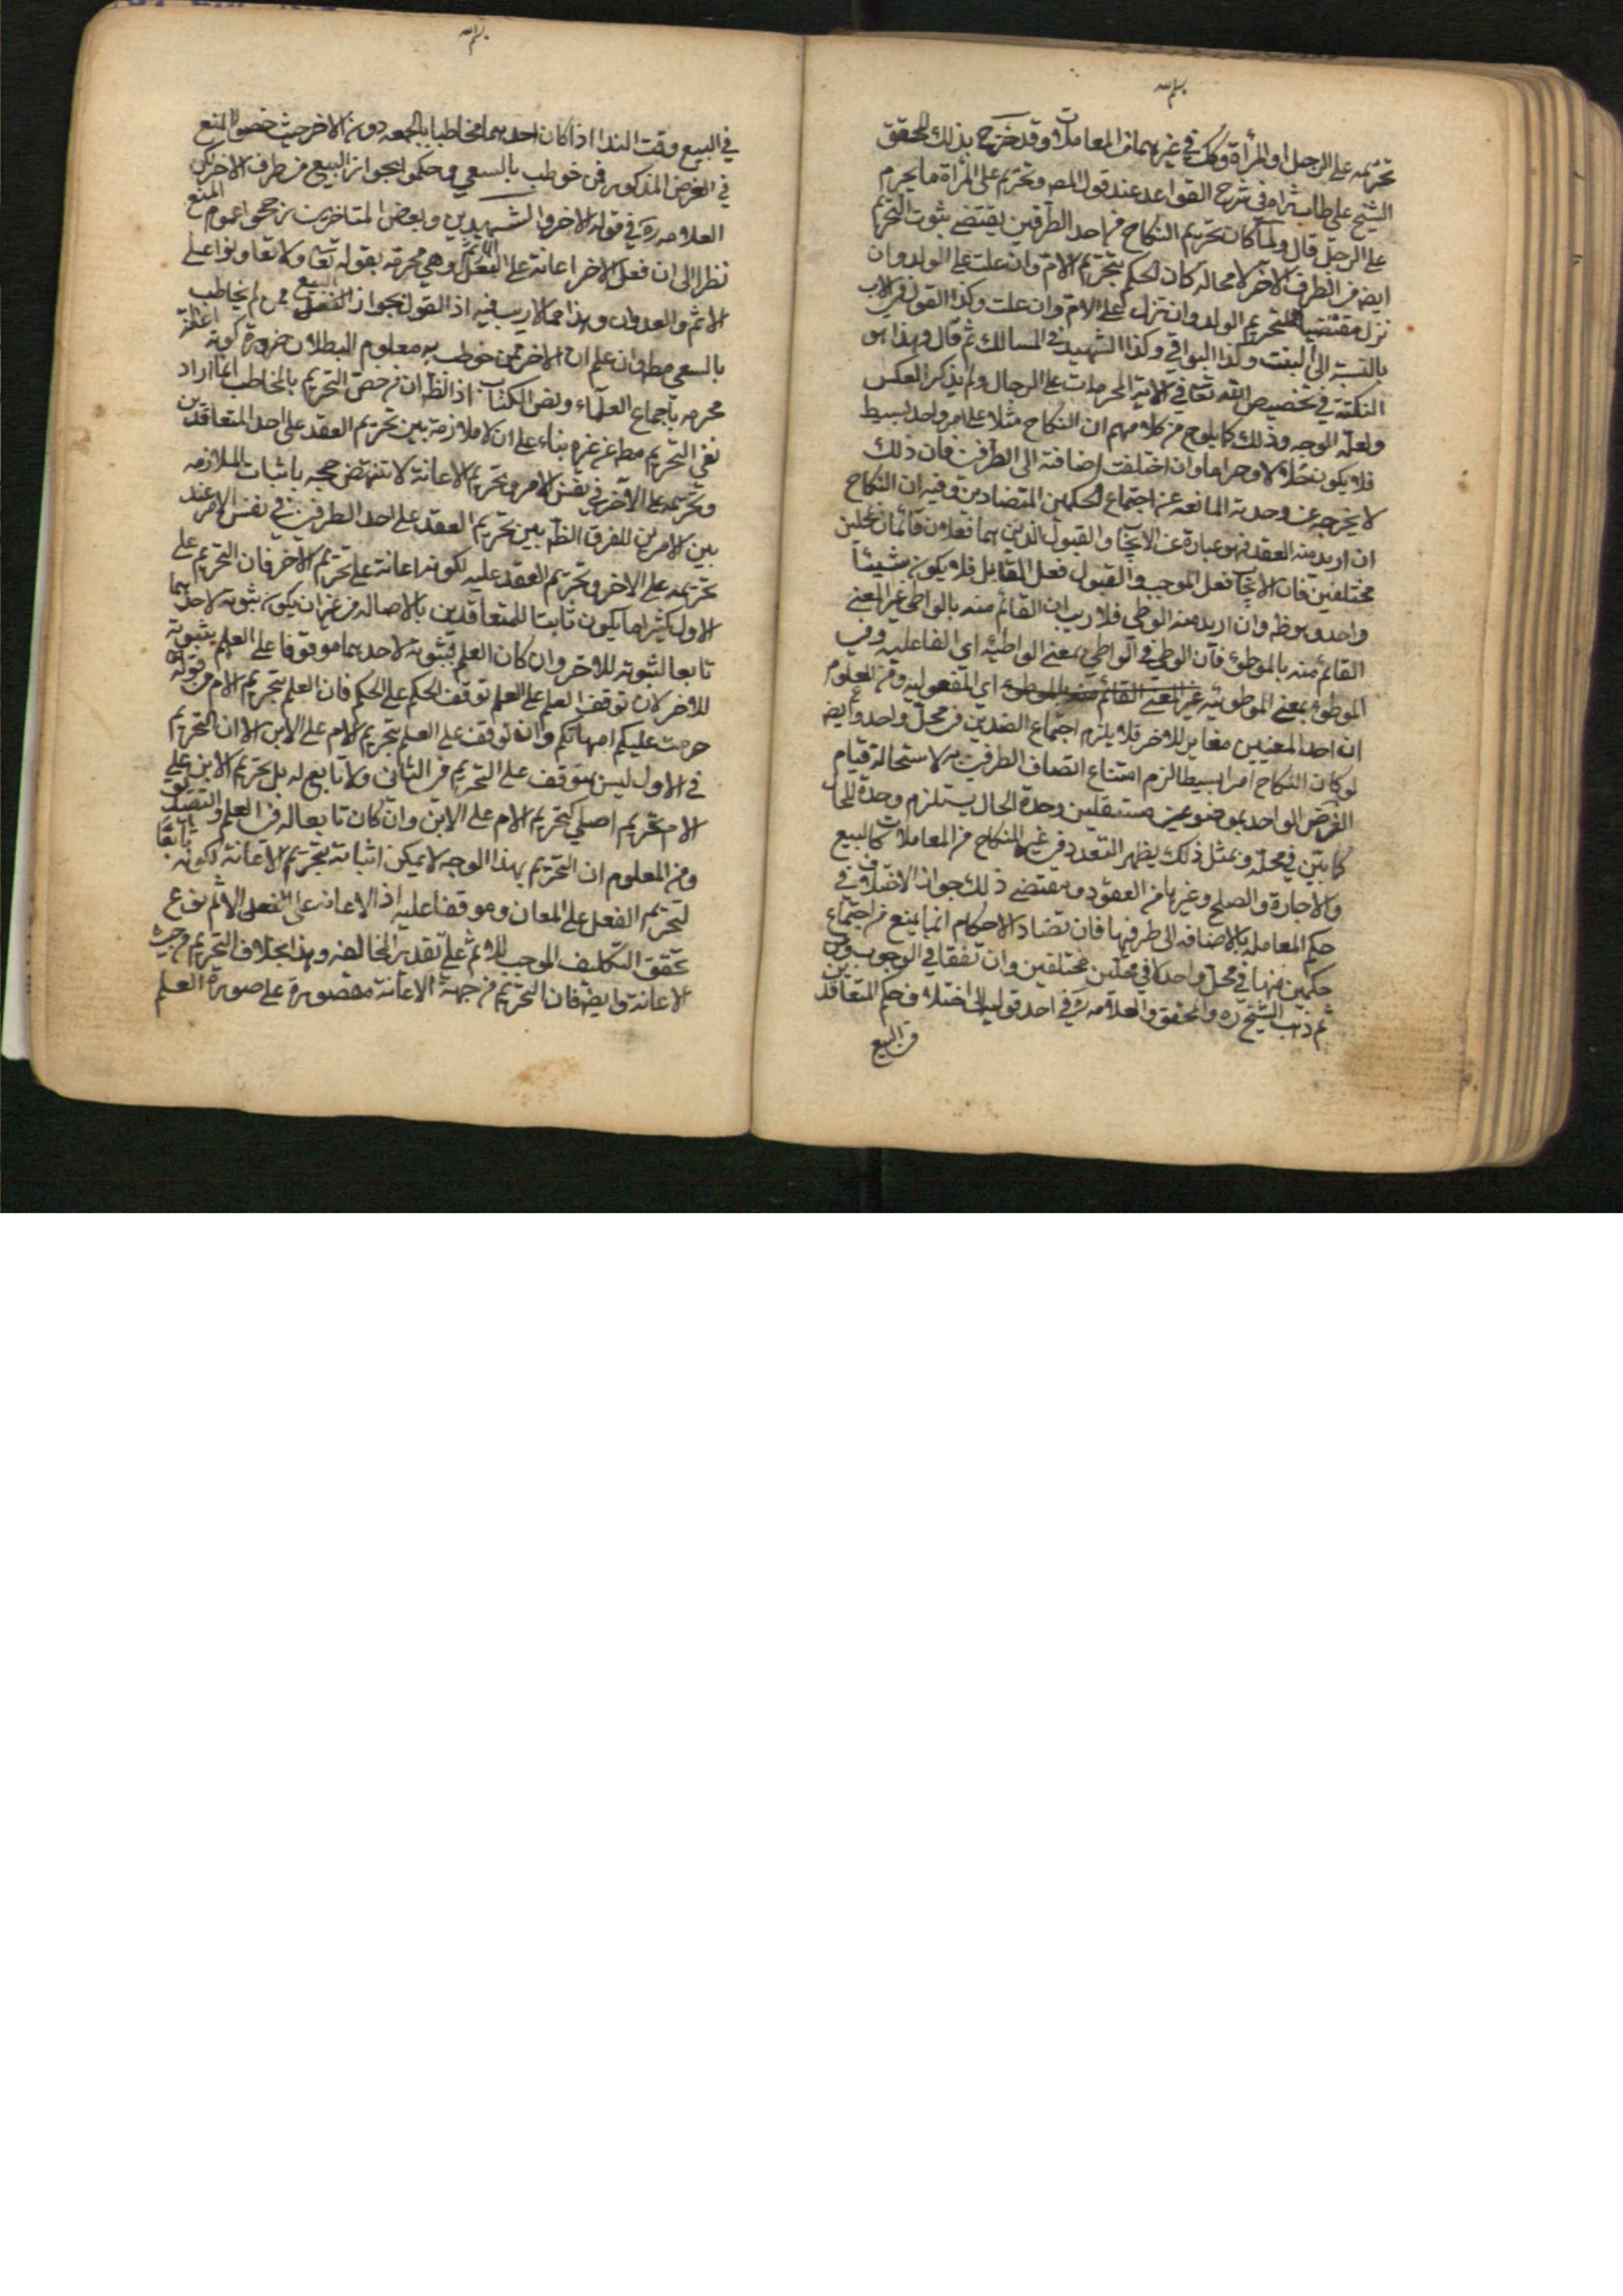 بسم الله
تحريمه على الرجل او المرأة وكذا في غيرهما من المعاملات وقد خرج بذلك المحقق
الشيخ على طاب ثراه في شرح القواعد عند قول المصـ وتحريم على المرأة ما يحرم
على الرجل قال ولما كان تحريم النكاح من احد الطرفين يقتضي ثبوت التحريم
ايضـ من الطرف الآخر لا محاله كان الحكم بتحريم الام وان علت على الولد وان
نزل مقتضيا لتحريم الولد وان نزل على الام وان علت وكذا القول في الاب
بالنسبة الى البنت وكذا البواقي وكذا الشهيد في المسالك ثم قال وهذا هو
النكتة في تخصيص الله تعالى في الآية المحرمات على الرجال ولم يذكر العكس
ولعل الوجه في ذلك كما يلوح من كلامهم ان النكاح مثلا على امر واحد بسيط
فلا يكون حلالا وحراما وان اختلفت اضافته الى الطرفين فان ذلك
لا يخرجه عن وحدته المانعه عن اجتماع الحكمين المتضادين وفيه ان النكاح
ان اريد منه العقد فهو عبارة عن الايجاب والقبول الذين هما فعلان قائمان بمحلين
مختلفين فان الايجاب فعل الموجب والقبول فعل القابل فلا يكون شيئا
واحدا وهو ظـ وان اريد منه الوطي فلا ريب ان القائم منه بالواطي غير المعنى
القائم منه بالموطوء فان الوطي في الواطي بمعنى الواطئيه اي الفاعليه وفي
الموطوء بمعنى الموطوئيه غير المعنى القائم اي المفعوليه ومن المعلوم
ان احد المعنيين مغاير للاخر فلا يلزم اجتماع الضدين في محل واحد وايضـ
لو كان النكاح امرا بسيطا لزم امتناع اتصاف الطرفين به لاستحالة قيام
العرض الواحد بموضوعين مستقلين وحدة الحال يستلزم وحدة المحل
كما بين في محله وبمثل ذلك يظهر التعدد في غير النكاح من المعاملات كالبيع
والاجارة والصلح وغيرها من العقود ومقتضى ذلك جواز الاختلاف في
حكم المعامله بالاضافه الى طرفيها فان تضاد الاحكام انما يمنع من اجتماع
حكمين منها في محل واحد لا في محلين مختلفين وان تفقا في الوجوب ومن
ثم ذهب الشيخ ره والمحقق والعلامه في احد قوليه الى اختلاف حكم المتعاقدين
في البيع
بسم الله
في البيع وقت الندا اذا كان احدهما مخاطبا بالجمعه دون الاخر حيث خصوا المنع
في الفرض المذكور بمن خوطب بالسعي وحكموا بجواز البيع من طرف الاخر لكن
العلامه ره في قوله الاخر والشهيدين وبعض المتاخرين رجحوا عموم المنع
نظرا الى ان فعل الاخر اعانة على الاثم وهي محرمه بقوله تعالى ولا تعاونوا على
الاثم والعدوان وهذا مما لا ريب فيه اذ القول بجواز البيع ممن لم يخاطب
بالسعي مطـ وان علم ان الاخر ممن خوطب به معلوم البطلان ضرورة كونه اعانة
محرمه باجماع العلماء ونص الكتاب اذ الظـ ان من خص التحريم بالمخاطب انما اراد
نفي التحريم مطـ عن غيره بناء على ان لا ملازمة بين تحريم العقد على احد المتعاقدين
وتحريمه على الآخر في نفس الامر وتحريم الاعانة لا تنهض حجه باثبات الملازمه
بين الامرين للفرق الظـ بين تحريم العقد على احد الطرفين في نفس الامر عند
تحريمه على الاخر وتحريم العقد عليه لكونها اعانة على تحريم الاخر فان التحريم على
الاول كثيرا ما يكون ثابتا للمتعاقدين بالاصاله من غير ان يكون ثبوته لاحدهما
تابعا لثبوته للاخر وان كان العلم بثبوته لاحدهما موقوفا على العلم بثبوته
للاخر لان توقف العلم على العلم لا توقف الحكم على الحكم فان العلم بتحريم الام من قوله
حرمت عليكم امهاتكم وان توقف على العلم بتحريم الام على الابن الا ان التحريم
في الاول ليس بتوقف على التحريم في الثاني ولا تابع له بل تحريم الابن على
الام تحريم اصلي كتحريم الام على الابن وان كان تابعا له في العلم والتصديق
ومن المعلوم ان التحريم بهذا الوجه لا يمكن اثباته بتحريم الاعانة لكونه تابعا
لتحريم الفعل على المعان وموقفا عليه اذ الاعانه على الفعل الاثم فرع
تحقق التكليف الموجب للاثم على تقدير المخالفه وهذا بخلاف التحريم من حيث
الاعانة وايضـ فان التحريم من جهة الاعانة مقصورة على صورة العلم